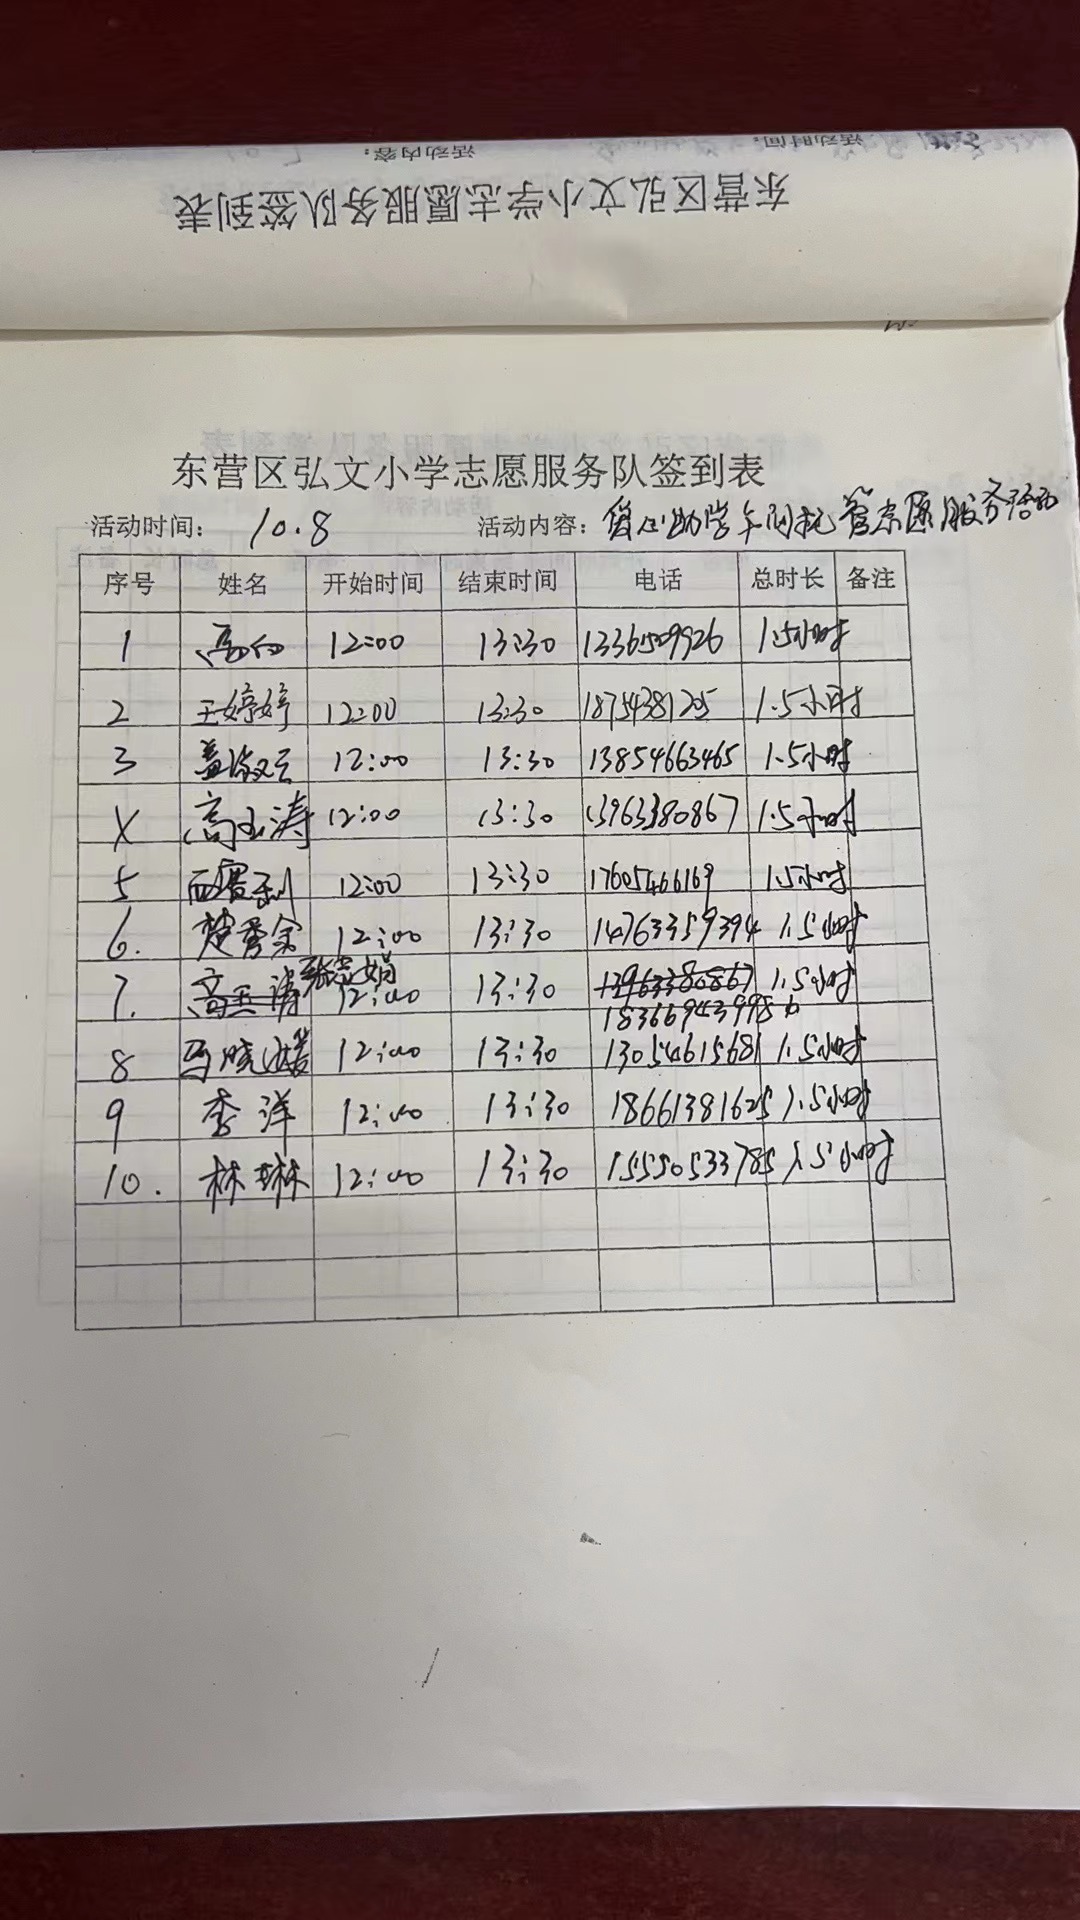 活动时间: 活动内容:
东营区弘文小学志愿服务队签到表
东营区弘文小学志愿服务队签到表
活动时间: 10.8 活动内容: 爱心助学午间托管志愿服务活动
序号 姓名 开始时间 结束时间 电话 总时长 备注
1 12:00 13:30 13361509926 1.5小时
2 王婷婷 12:00 13:30 18754381205 1.5小时
3 盖淑云 12:00 13:30 13854663465 1.5小时
高玉涛 12:00 13:30 13963380867 1.5小时
5 12:00 13:30 17605466169 1.5小时
6. 楚秀余 12:00 13:30 14763359394 1.5小时
7. 高玉涛 12:00 13:30 13963380867 1.5小时
8 马晓媛 12:00 13:30 13054615681 1.5小时
9 李洋 12:00 13:30 18661381625 1.5小时
10. 林琳 12:00 13:30 15550533785 1.5小时